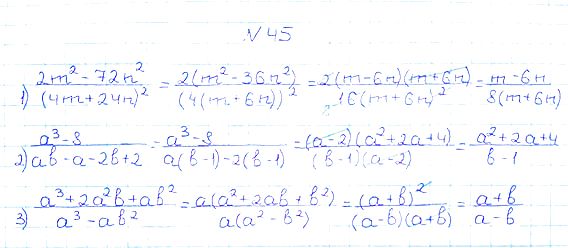 N45
1) (2m² - 72n²)/(4m + 24n)² = 2(m² - 36n²)/(4(m + 6n))² = 2(m - 6n)(m + 6n)/16(m + 6n)² = (m - 6n)/8(m + 6n)
2) (a³ - 8)/(ab - a - 2b + 2) = (a³ - 8)/(a(b - 1) - 2(b - 1)) = (a - 2)(a² + 2a + 4)/(b - 1)(a - 2) = (a² + 2a + 4)/(b - 1)
3) (a³ + 2a²b + ab²)/(a³ - ab²) = a(a² + 2ab + b²)/a(a² - b²) = (a + b)²/(a - b)(a + b) = (a + b)/(a - b)